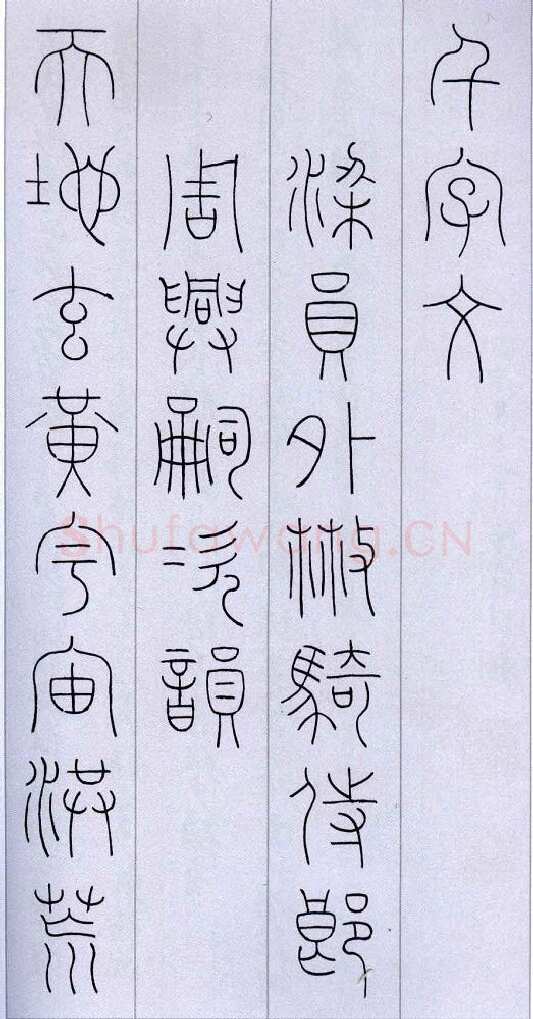 千字文
梁員外散騎侍郎
周興嗣次韻
天地玄黃宇宙洪荒
Shufawang.CN